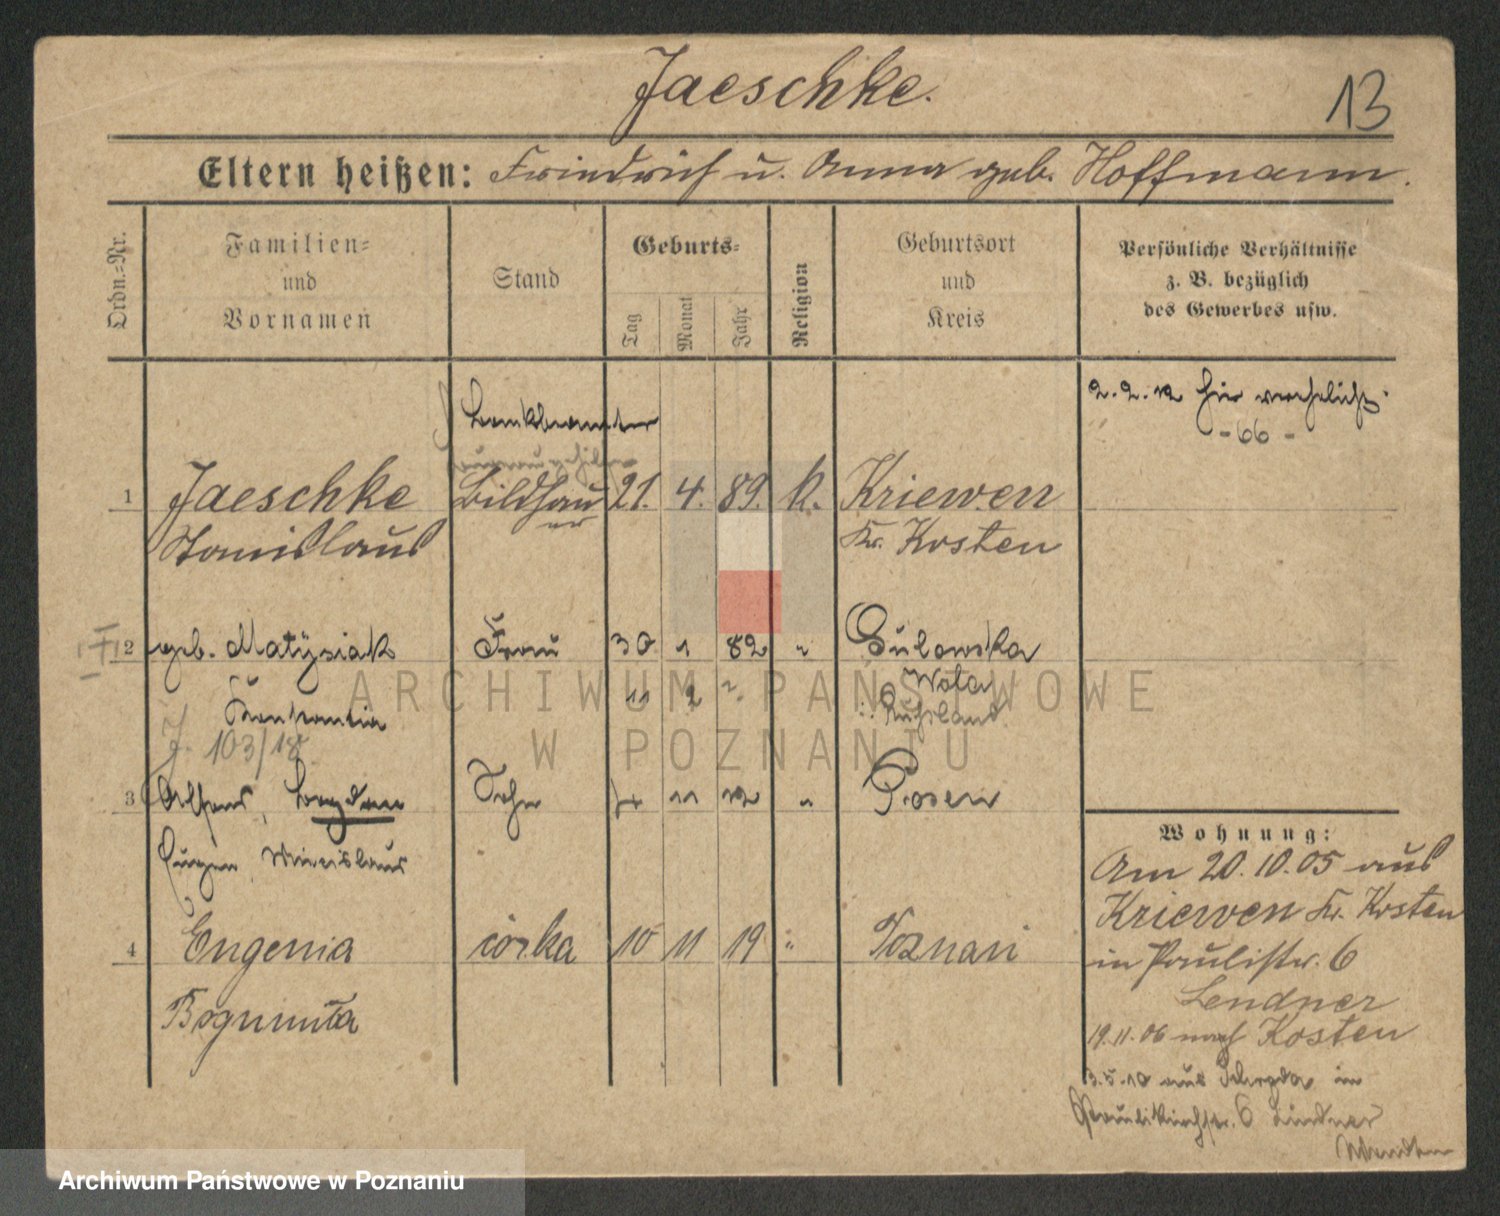 Jaeschke.
13
Eltern heißen: Friedrich u. Anna geb. Hoffmann.
Ordn.=Nr.
Familien=
und
Vornamen
Stand
Geburts=
Tag
Monat
Jahr
Religion
Geburtsort
und
Kreis
Persönliche Verhältnisse
z. B. bezüglich
des Gewerbes usw.
Bankbeamter
2.2.12 hier verehelicht.
-66-
1 Jaeschke Bildhau 21. 4. 89. k. Kriewen
er
Stanislaus Kr. Kosten
2 geb. Matysiak Frau 30 1 82 " Gulowska
Wola
11 2 "
Konstantia Rußland
J. 103/18
3 Alfons, Bogdan Sohn 7 11 12 " Posen
Eugen, Miecislaus
4 Eugenia córka 10 11 19 " Poznań
Bogumiła
Wohnung:
Am 20.10.05 aus
Kriewen Kr. Kosten
in Paulistr. 6
Lendner
19.11.06 nach Kosten
3.5.10 aus Schroda in
Paulikirchstr. 6 Lindner
ARCHIWUM PAŃSTWOWE
W POZNANIU
Archiwum Państwowe w Poznaniu